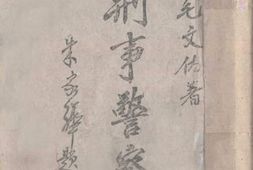 文佐著
刑事警察
朱家驊題